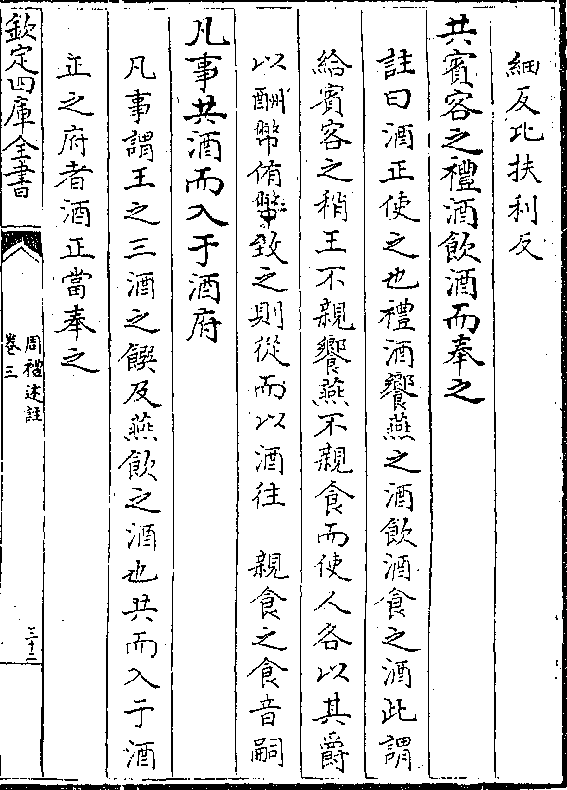 細反比扶利反
共賓客之禮酒飲酒而奉之
註曰酒正使之也禮酒饗燕之酒飲酒食之酒此謂
給賓客之稍王不親饗燕不親食而使人各以其爵
以酬幣侑幣致之則從而以酒往　親食之食音嗣
凡事共酒而入于酒府
凡事謂王之三酒之饌及燕飲之酒也共而入于酒
正之府者酒正當奉之
欽定四庫全書
周禮述註
卷三
三十二